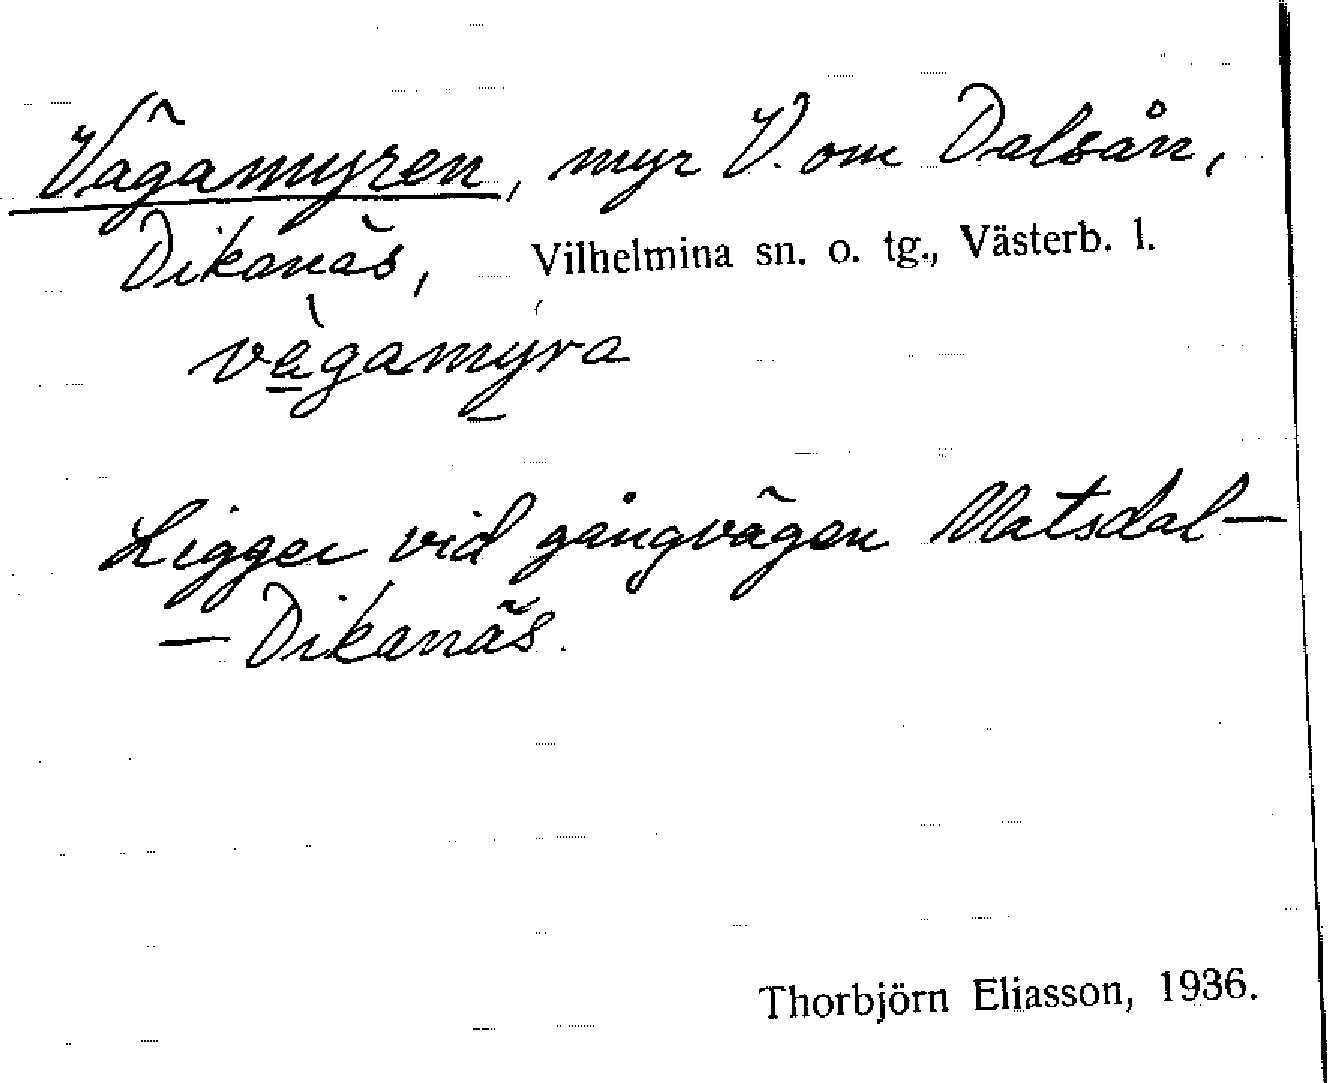 Vägamyren, myr V. om Dalsån,
Dikanäs, Vilhelmina sn. o. tg., Västerb. l.
vègamýra
Ligger vid gångvägen Matsdal—
— Dikanäs.
Thorbjörn Eliasson, 1936.